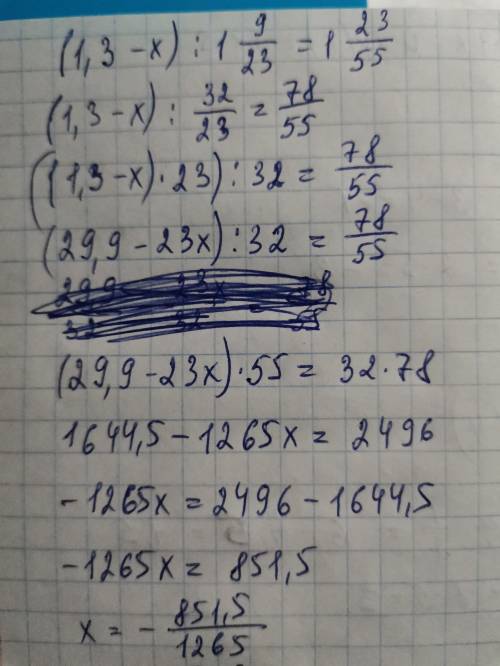 (1,3 - x) : 1 9/23 = 1 23/55
(1,3 - x) : 32/23 = 78/55
((1,3 - x) · 23) : 32 = 78/55
(29,9 - 23x) : 32 = 78/55
(29,9 - 23x) · 55 = 32 · 78
1644,5 - 1265x = 2496
-1265x = 2496 - 1644,5
-1265x = 851,5
x = - 851,5/1265